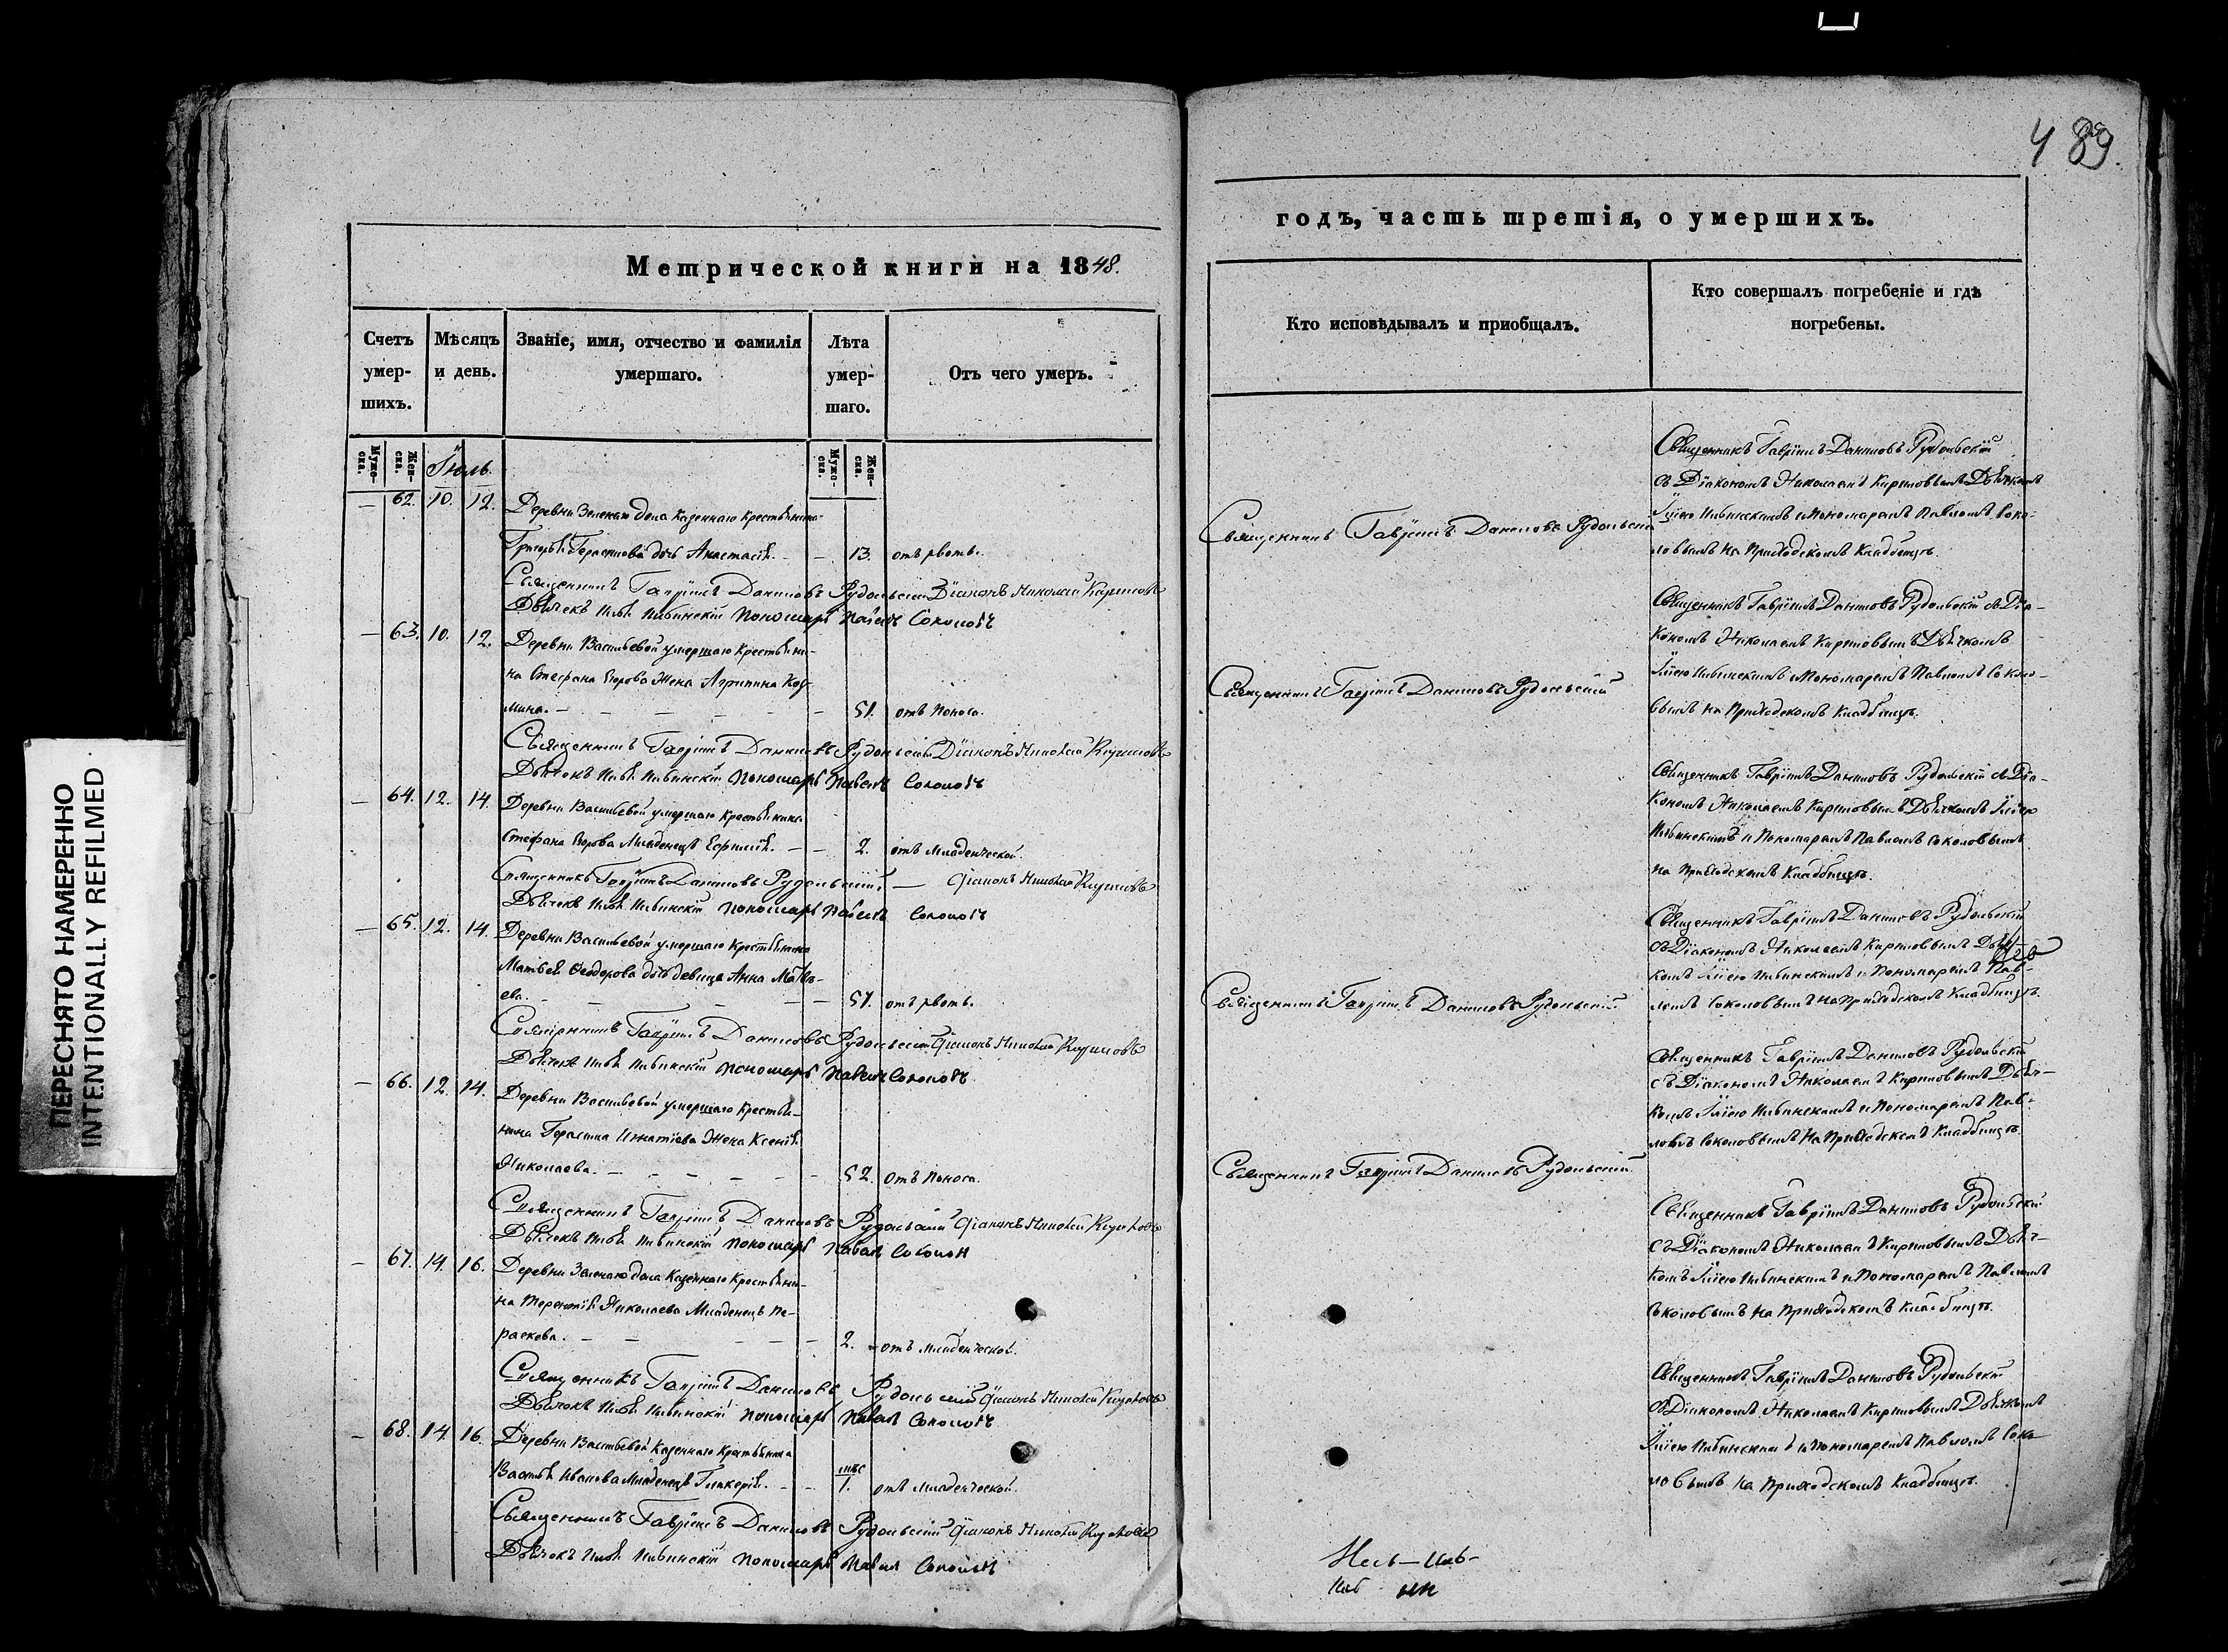 489.
ПЕРЕСНЯТО НАМЕРЕННО
INTENTIONALLY REFILMED
Метрической книги на 1848.
Счетъ умер-шихъ.
Мѣсяцъ и день.
Званіе, имя, отчество и фамилія умершаго.
Лѣта умер-шаго.
Отъ чего умеръ.
Муже-ска.
Жен-ска.
Іюль.
Муже-ска.
Жен-ска.
— 62. 10. 12. Деревни Зеленаго дола Казеннаго Крестьянина
Григорья Герасимова дочь Анастасія. — — 13. отъ рвоты.
Священникъ Гавріилъ Даниловъ Рудольскій Діаконъ Николай Кириловъ
Дьячекъ Илья Ильинскій Пономарь Павелъ Соколовъ
— 63. 10. 12. Деревни Васильевой умершаго Крестьяни-
на Стефана Егорова Жена Агрипина Коз-
мина. — — — — 51. отъ Поноса.
Священникъ Гавріилъ Даниловъ Рудольскій Діаконъ Николай Кириловъ
Дьячекъ Илья Ильинскій Пономарь Павелъ Соколовъ
— 64. 12. 14. Деревни Васильевой умершаго Крестьянина
Стефана Егорова Младенецъ Евфимія. — — 2. отъ Младенческой.
Священникъ Гавріилъ Даниловъ Рудольскій — Діаконъ Николай Кириловъ
Дьячекъ Илья Ильинскій Пономарь Павелъ Соколовъ
— 65. 12. 14. Деревни Васильевой умершаго Крестьянина
Матвея Феодорова дочь девица Анна Матве-
ева. — — — — 57. отъ рвоты.
Священникъ Гавріилъ Даниловъ Рудольскій Діаконъ Николай Кириловъ
Дьячекъ Илья Ильинскій Пономарь Павелъ Соколовъ
— 66. 12. 14. Деревни Васильевой умершаго Крестья-
нина Герасима Игнатіева Жена Ксенія
Николаева. — — — — 52. отъ Поноса.
Священникъ Гавріилъ Даниловъ Рудольскій Діаконъ Николай Кириловъ
Дьячекъ Илья Ильинскій Пономарь Павелъ Соколовъ
— 67. 14. 16. Деревни Зеленаго дола Казеннаго Крестьяни-
на Терентія Николаева Младенецъ Па-
раскева. — — — — 2. отъ Младенческой.
Священникъ Гавріилъ Даниловъ Рудольскій Діаконъ Николай Кириловъ
Дьячекъ Илья Ильинскій Пономарь Павелъ Соколовъ
— 68. 14. 16. Деревни Васильевой Казеннаго Крестьянина
Василья Иванова Младенецъ Гликерія. — — мѣс 1. отъ Младенческой.
Священникъ Гавріилъ Даниловъ Рудольскій Діаконъ Николай Кириловъ
Дьячекъ Илья Ильинскій Пономарь Павелъ Соколовъ
годъ, часть третія, о умершихъ.
Кто исповѣдывалъ и пріобщалъ.
Кто совершалъ погребеніе и гдѣ погребены.
Священникъ Гавріилъ Даниловъ Рудольскій
Священникъ Гавріилъ Даниловъ Рудольскій
съ Діакономъ Николаемъ Кириловымъ Дьячкомъ
Іліею Ильинскимъ и Пономаремъ Павломъ Соко-
ловымъ на Приходскомъ Кладбищѣ.
Священникъ Гавріилъ Даниловъ Рудольскій
Священникъ Гавріилъ Даниловъ Рудольскій съ Діа-
кономъ Николаемъ Кириловымъ Дьячкомъ
Іліею Ильинскимъ и Пономаремъ Павломъ Соколо-
вымъ на Приходскомъ Кладбищѣ.
Священникъ Гавріилъ Даниловъ Рудольскій съ Діа-
кономъ Николаемъ Кириловымъ Дьячкомъ Іліею
Ильинскимъ и Пономаремъ Павломъ Соколовымъ
на Приходскомъ Кладбищѣ.
Священникъ Гавріилъ Даниловъ Рудольскій
Священникъ Гавріилъ Даниловъ Рудольскій
съ Діакономъ Николаемъ Кириловымъ Дьяч-
комъ Іліею Ильинскимъ и Пономаремъ Пав-
ломъ Соколовымъ на Приходскомъ Кладбищѣ.
Священникъ Гавріилъ Даниловъ Рудольскій
Священникъ Гавріилъ Даниловъ Рудольскій
съ Діакономъ Николаемъ Кириловымъ Дьяч-
комъ Іліею Ильинскимъ и Пономаремъ Пав-
ломъ Соколовымъ на Приходскомъ Кладбищѣ.
Священникъ Гавріилъ Даниловъ Рудольскій
съ Діакономъ Николаемъ Кириловымъ Дьяч-
комъ Іліею Ильинскимъ и Пономаремъ Павломъ
Соколовымъ на Приходскомъ Кладбищѣ.
Священникъ Гавріилъ Даниловъ Рудольскій
съ Діакономъ Николаемъ Кириловымъ Дьячкомъ
Іліею Ильинскимъ и Пономаремъ Павломъ Соко-
ловымъ на Приходскомъ Кладбищѣ.